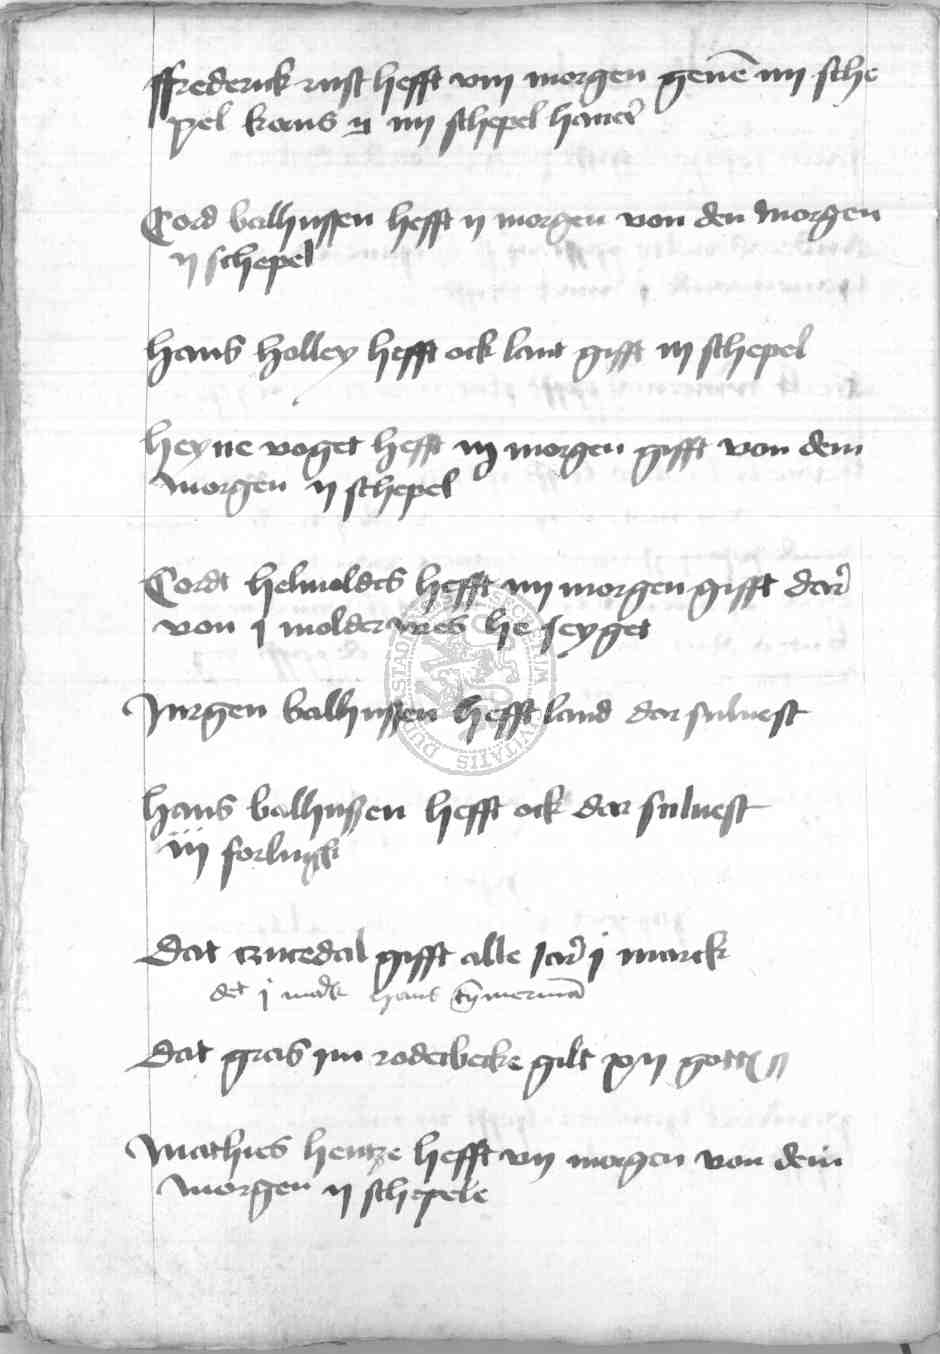 Frederick rust hefft viij morgen geuē iiij sche
pel korns ij iiij schepel hauer
Cord balhussen hefft ij morgen von den morgen
ij schepel
Hans holley hefft ock lant gifft iij schepel
Heyne voget hefft iij morgen gifft von dem
morgen ij schepel
Cordt helmoldes hefft iiij morgen gifft dar
von j molder wes he seyget
Jurgen balhussen hefft land dar suluest
Hans balhussen hefft ock dar suluest
iij forlingk
Dat gifft alle Jar j marck
det j marck hans tymerman
Dat gras im rodenbecke gilt xvij gott
Mathies hentze hefft vij morgen von dem
morgen ij schepele
STADT
SECRETUM
CIVITATIS